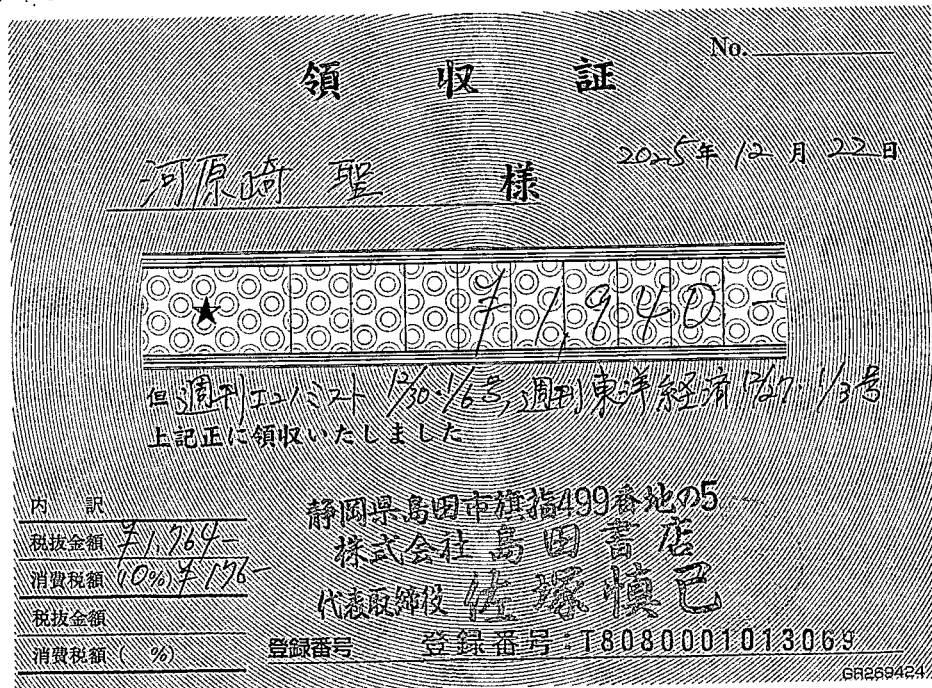 No.
領収証
2025年12月22日
河原崎 聖 様
★ ¥1,940-
但 週刊エコノミスト 12/30・1/6号, 週刊東洋経済 12/27・1/3号
上記正に領収いたしました
内 訳
税抜金額 ¥1,764-
消費税額(10%) ¥176-
税抜金額
消費税額( %)
静岡県島田市旗指499番地の5
株式会社 島田書店
代表取締役 佐塚慎己
登録番号 登録番号:T8080001013069
GR269424